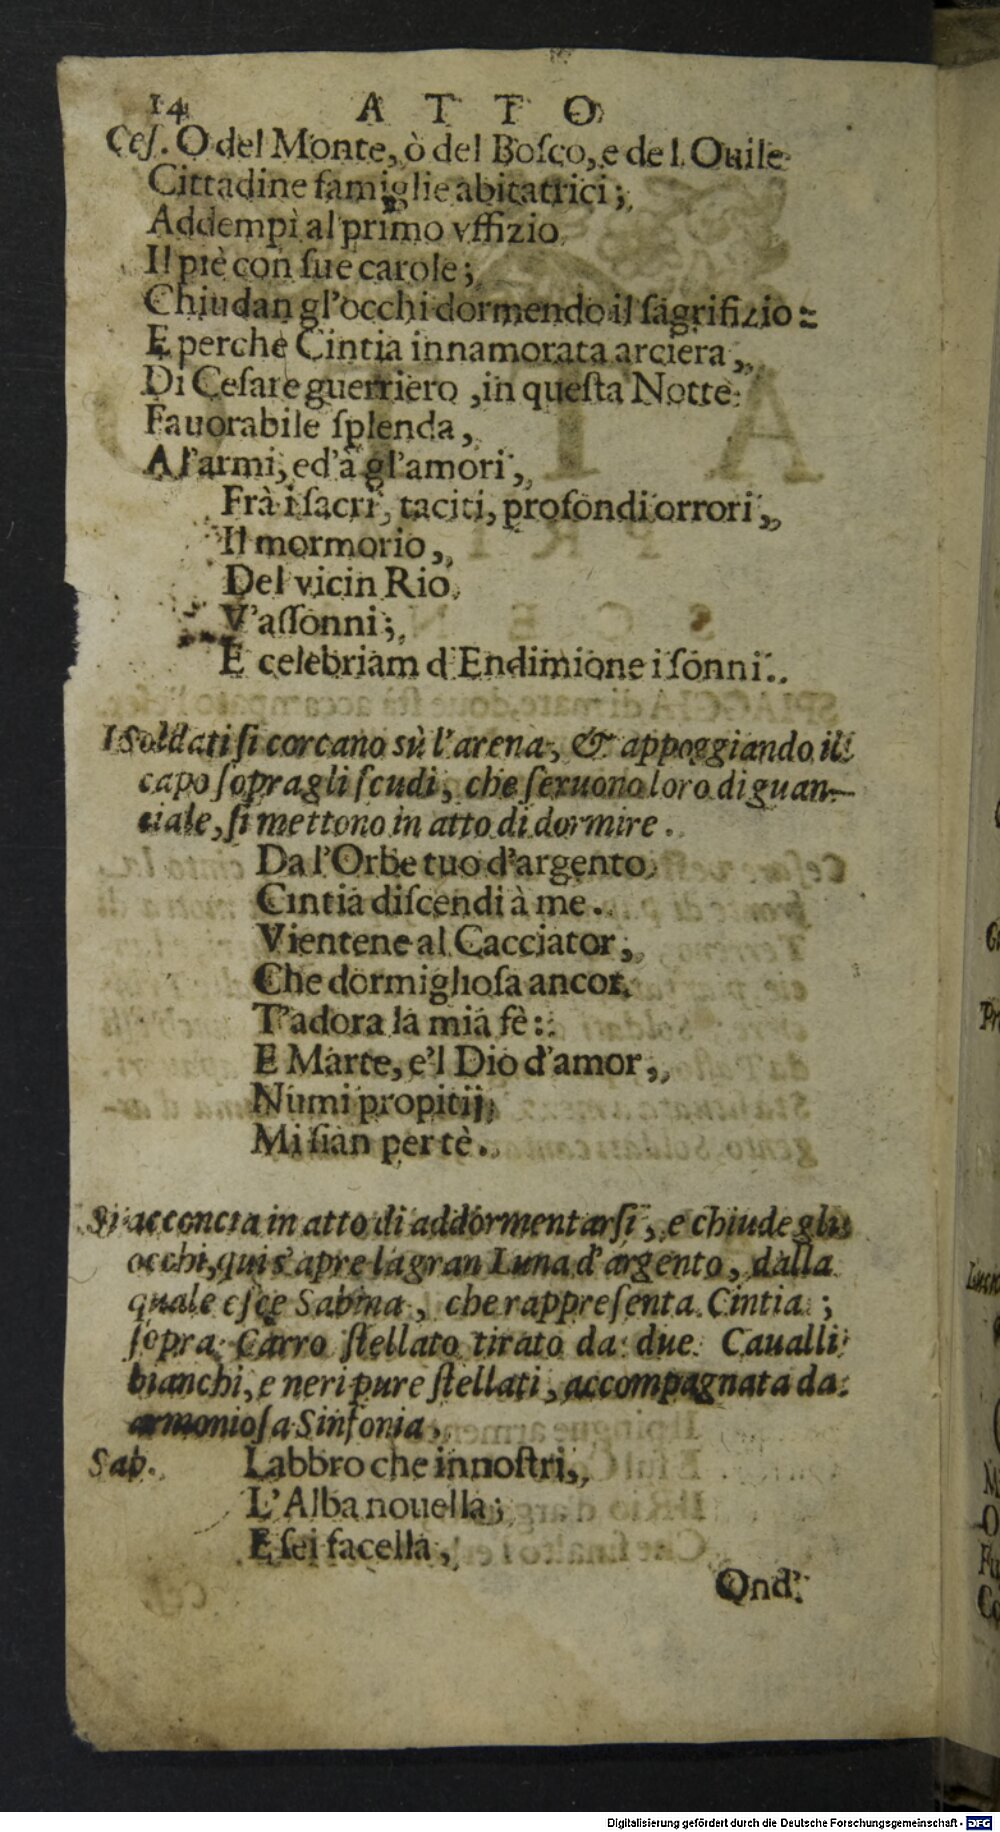 14 ATTO
Ceſ. O del Monte, ò del Boſco, e de l Ouile
Cittadine famiglie abitatrici;
Addempì al primo vffizio
Il piè con ſue carole;
Chiudan gl'occhi dormendo il ſagrifizio:
E perche Cintia innamorata arciera,
Di Ceſare guerriero, in queſta Notte
Fauorabile ſplenda,
A l'armi, ed'à gl'amori,
Frà i ſacri, taciti, profondi orrori,
Il mormorio,
Del vicin Rio
V'aſſonni;
E celebriam d'Endimione i ſonni.
I Soldati ſi corcano sù l'arena, & appoggiando il
capo ſopra gli ſcudi, che ſeruono loro di guan-
ciale, ſi mettono in atto di dormire.
Da l'Orbe tuo d'argento
Cintia diſcendi à me.
Vientene al Cacciator,
Che dormiglioſa ancor
T'adora la mia fè:
E Marte, e'l Dio d'amor,
Numi propitij
Mi ſian per tè.
Si acconcia in atto di addormentarſi, e chiude gli
occhi, qui s'apre la gran Luna d'argento, dalla
quale eſce Sabina, che rappreſenta Cintia;
ſopra Carro ſtellato tirato da due Caualli
bianchi, e neri pure ſtellati, accompagnata da
armonioſa Sinfonia,
Sab. Labbro che innoſtri,
L'Alba nouella;
E ſei facella,
Ond'
Digitalisierung gefördert durch die Deutsche Forschungsgemeinschaft - DFG